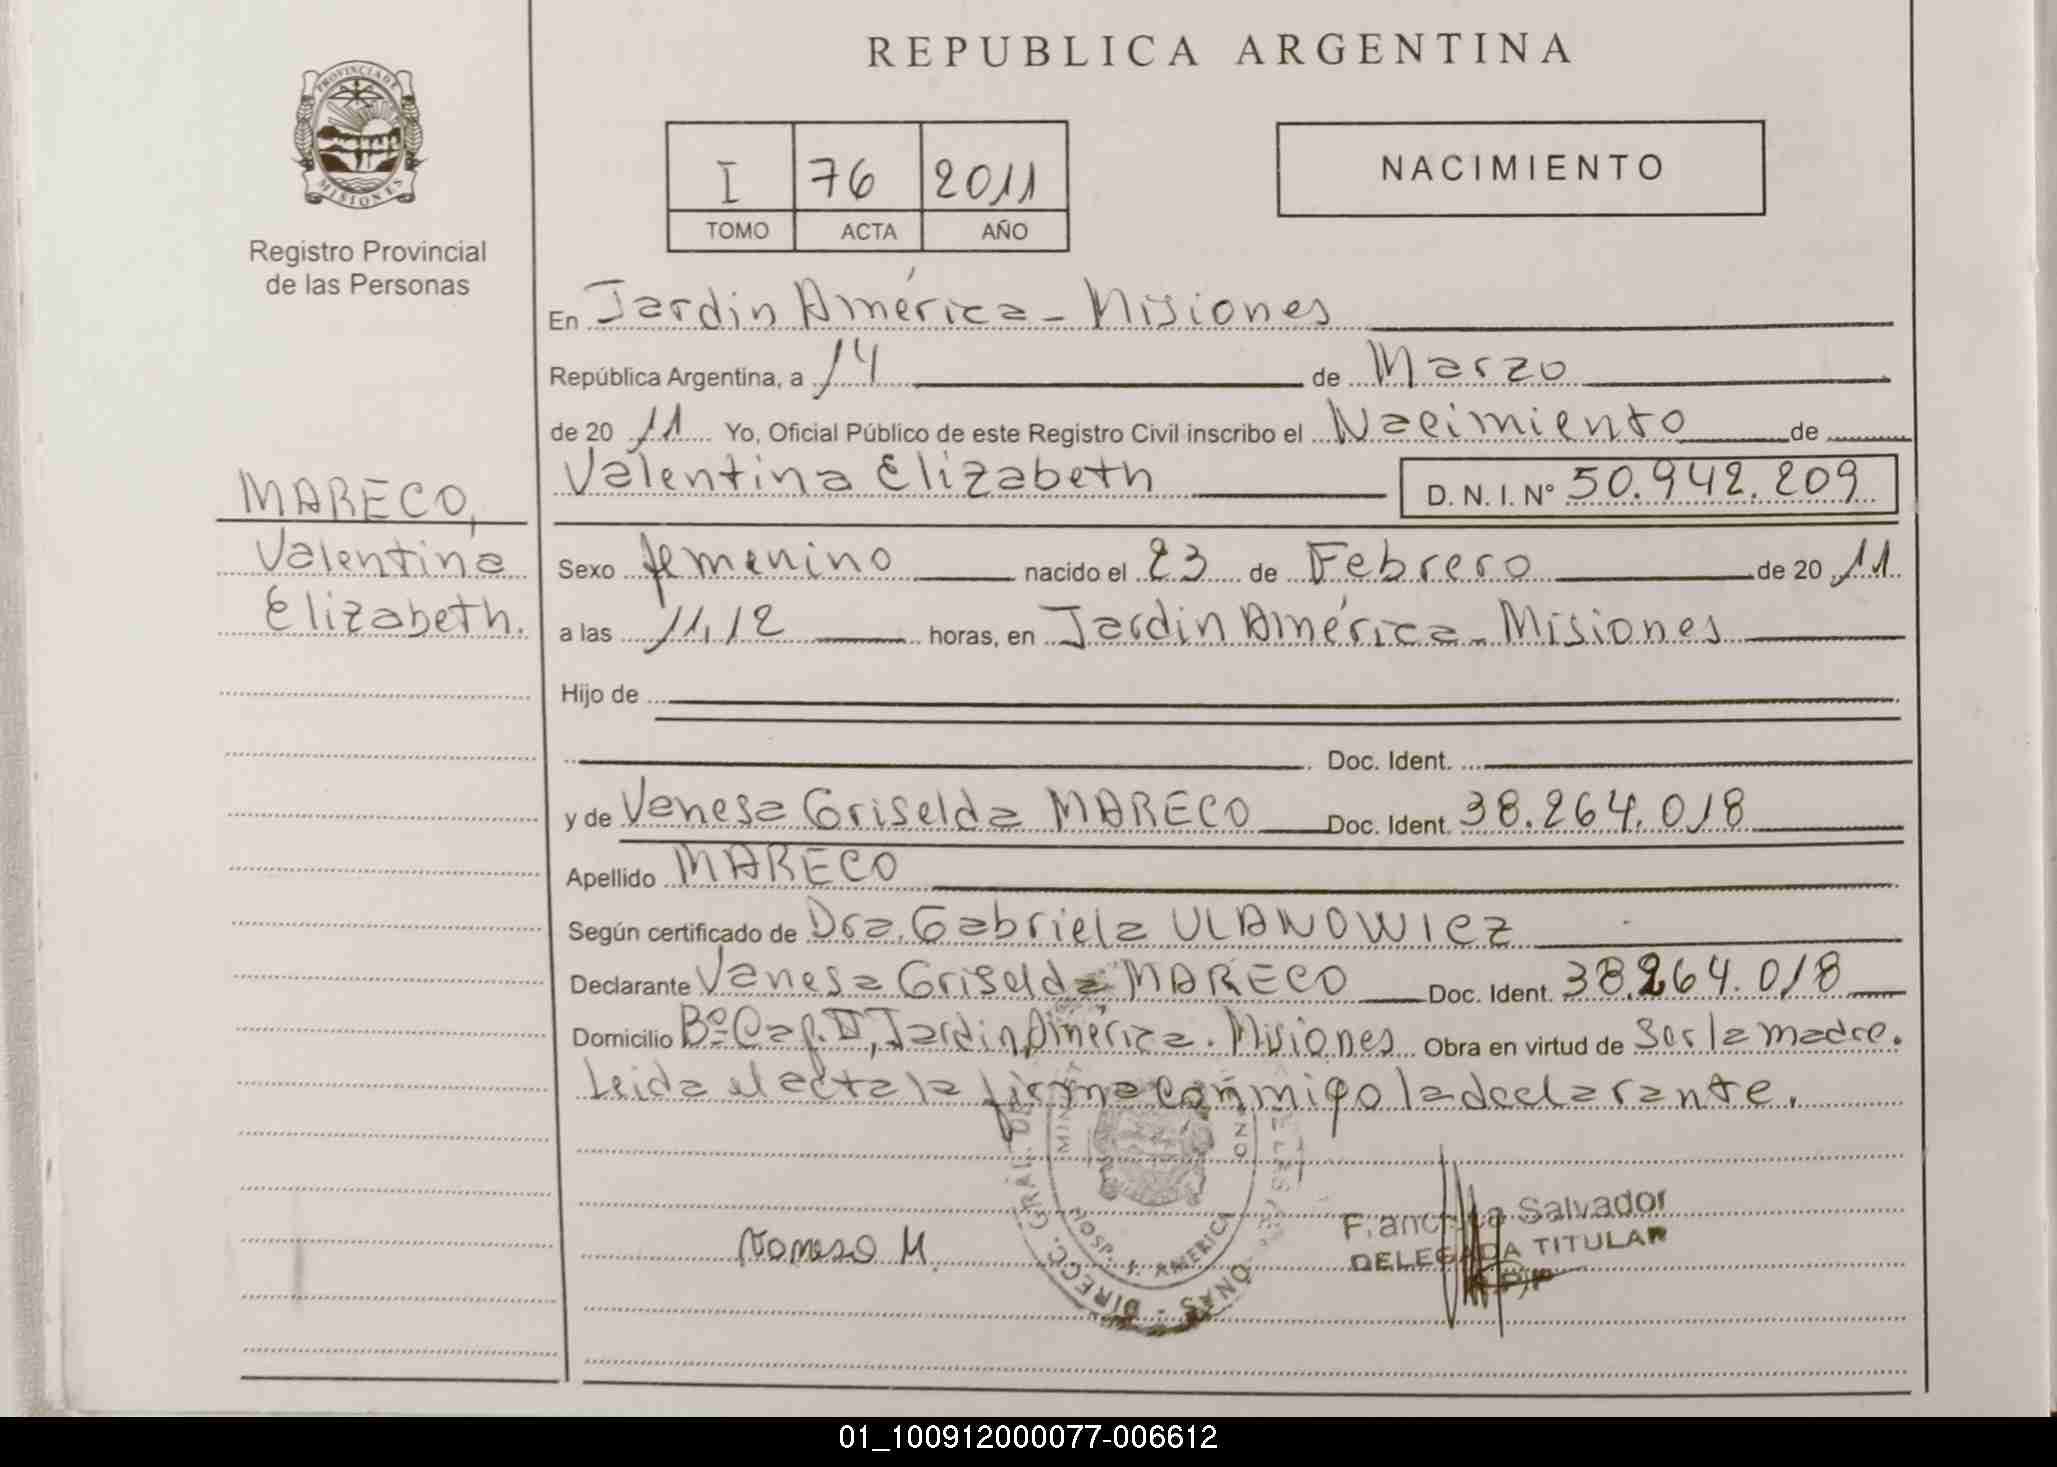 REPUBLICA ARGENTINA
PROVINCIA DE
MISIONES
Registro Provincial
de las Personas
I 76 2011
TOMO ACTA AÑO
NACIMIENTO
En Jardin América - Misiones
República Argentina, a 14 de Marzo
de 20 11 Yo, Oficial Público de este Registro Civil inscribo el Nacimiento de
Valentina Elizabeth D. N. I. N° 50.942.209
MARECO,
Valentina
Elizabeth.
Sexo femenino nacido el 23 de Febrero de 20 11
a las 11,12 horas, en Jardin América - Misiones
Hijo de
Doc. Ident.
y de Vanesa Griselda MARECO Doc. Ident. 38.264.018
Apellido MARECO
Según certificado de Dra. Gabriela ULANOWICZ
Declarante Vanesa Griselda MARECO Doc. Ident. 38.264.018
Domicilio B° Cap. II, Jardin América. Misiones Obra en virtud de Ser la madre.
Leida el acta la firma conmigo la declarante.
DIRECC. GRAL. DE
HOSP. J. AMERICA
Vanesa M.
Salvador
DELEGADA TITULAR
01_100912000077-006612